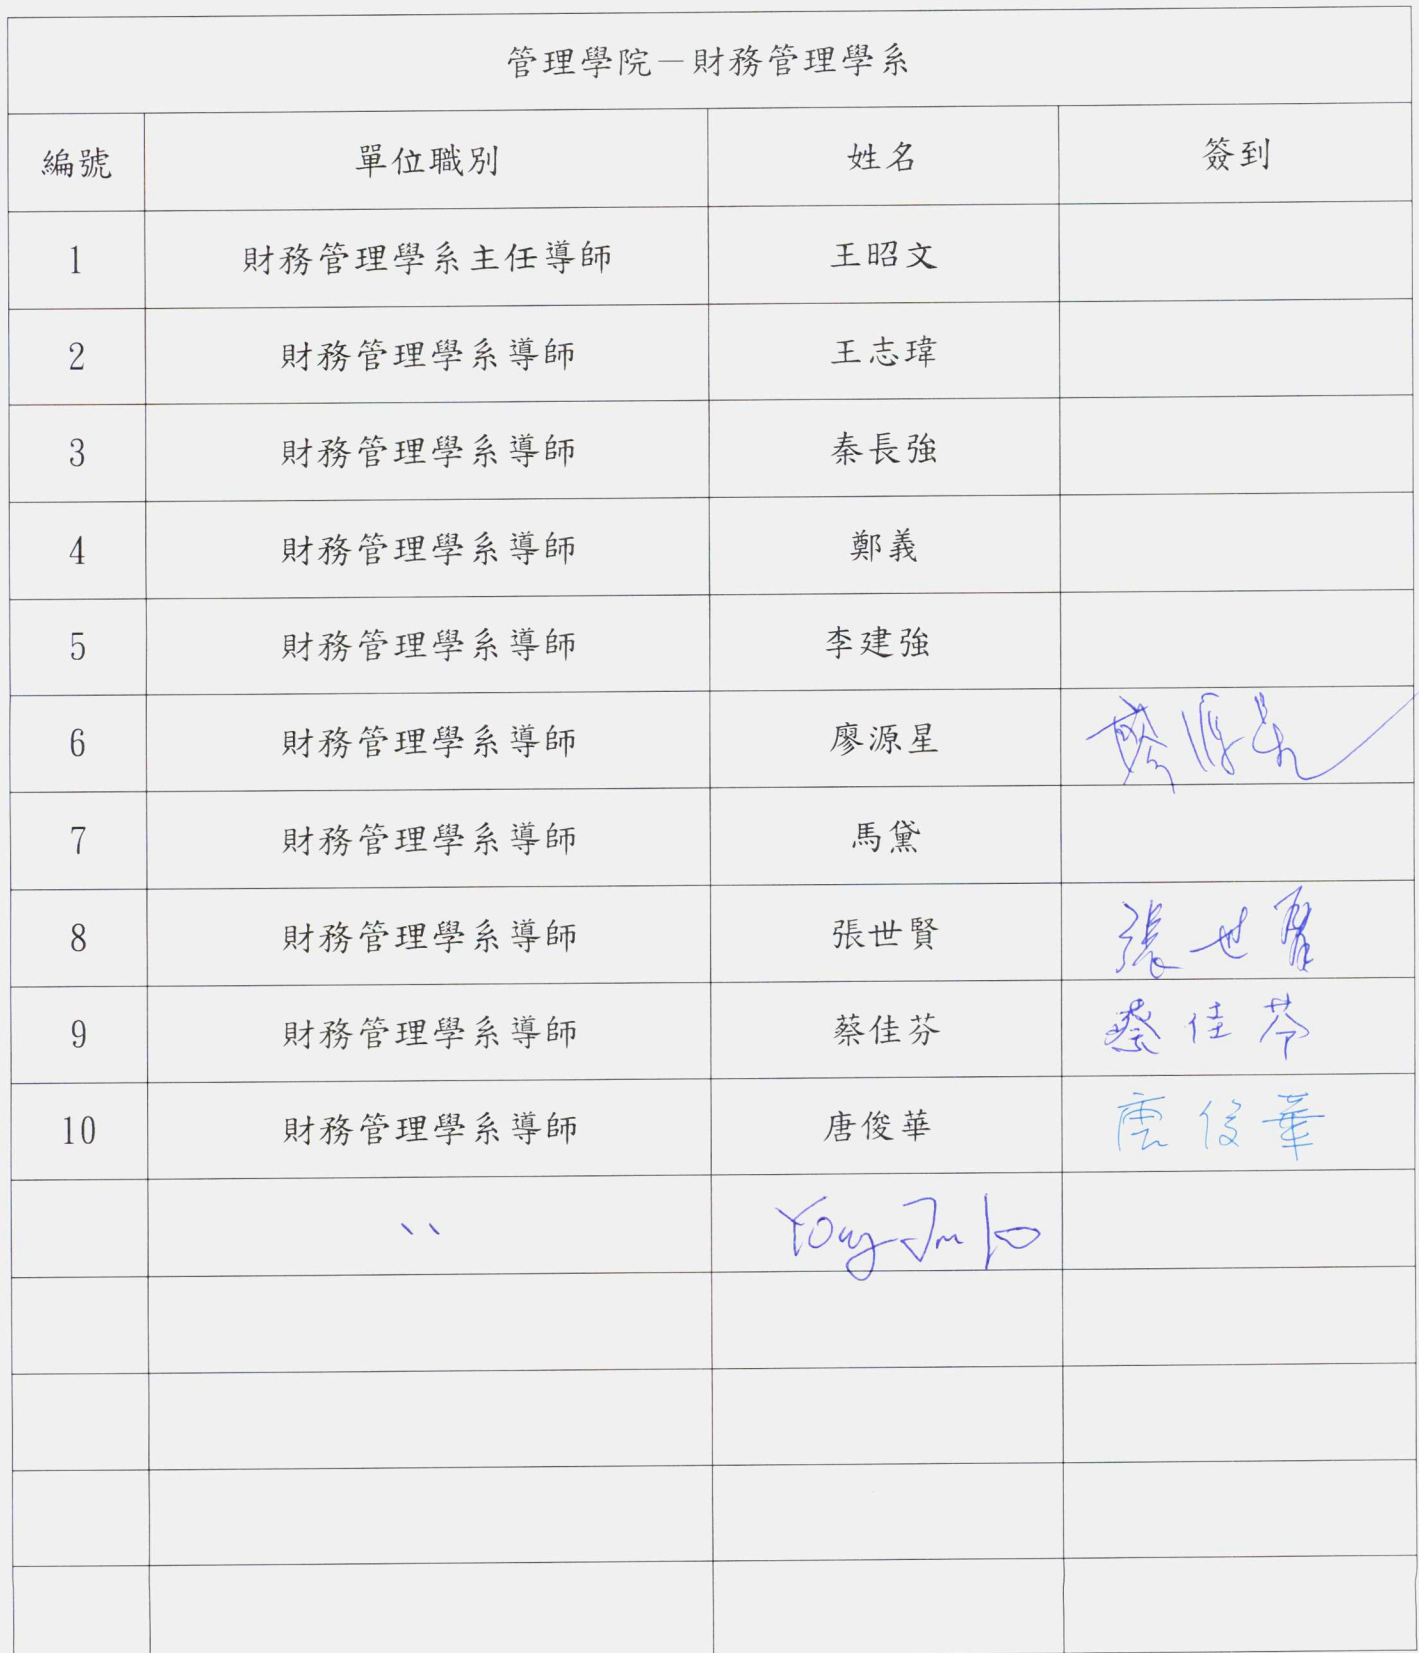 管理學院－財務管理學系
編號 單位職別 姓名 簽到
1 財務管理學系主任導師 王昭文
2 財務管理學系導師 王志瑋
3 財務管理學系導師 秦長強
4 財務管理學系導師 鄭義
5 財務管理學系導師 李建強
6 財務管理學系導師 廖源星 廖源星
7 財務管理學系導師 馬黛
8 財務管理學系導師 張世賢 張世賢
9 財務管理學系導師 蔡佳芬 蔡佳芬
10 財務管理學系導師 唐俊華 唐俊華
〃